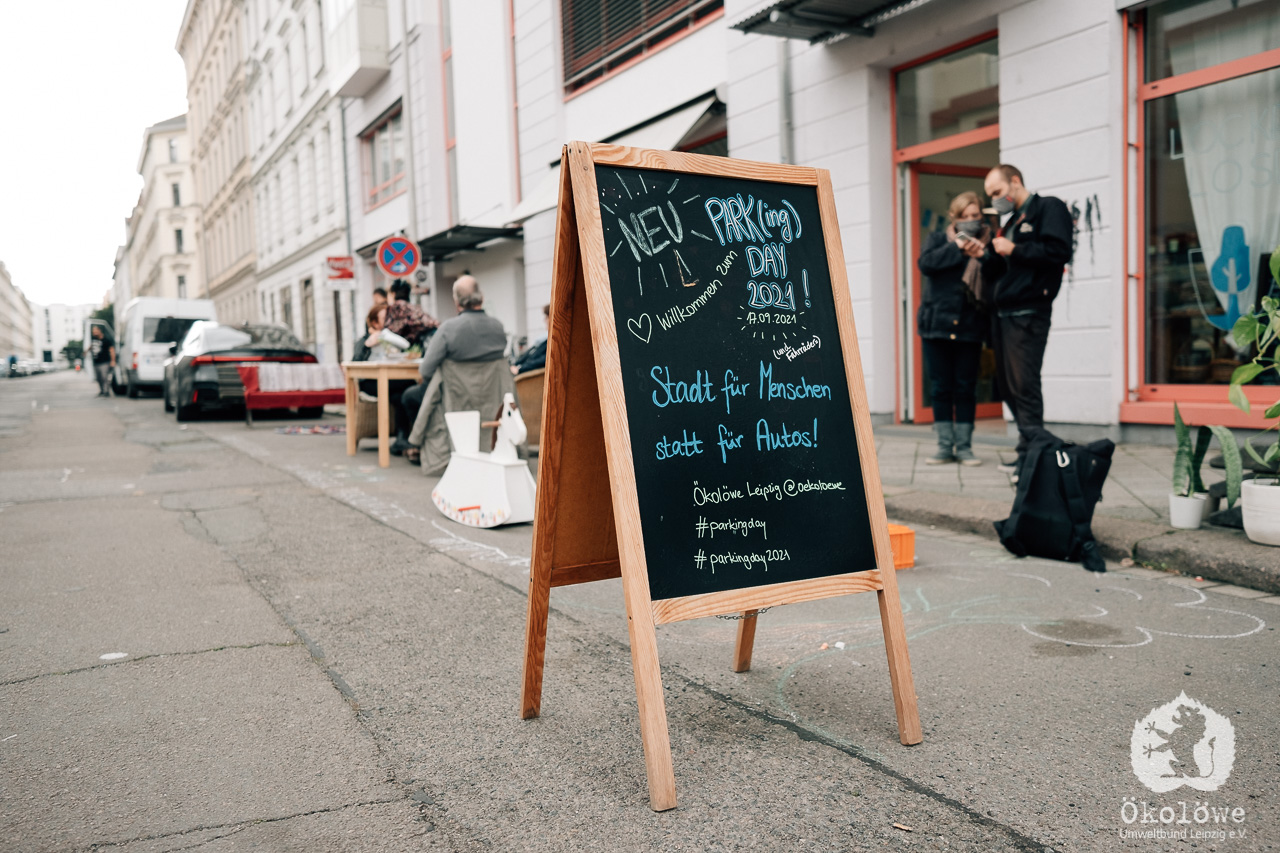 NEU
PARK(ing)
DAY
2021!
17.09.2021
♡ Willkommen zum
(und Fahrräder)
Stadt für Menschen
statt für Autos!
Ökolöwe Leipzig @oekoloewe
#parkingday
#parkingday2021
Ökolöwe
Umweltbund Leipzig e.V.